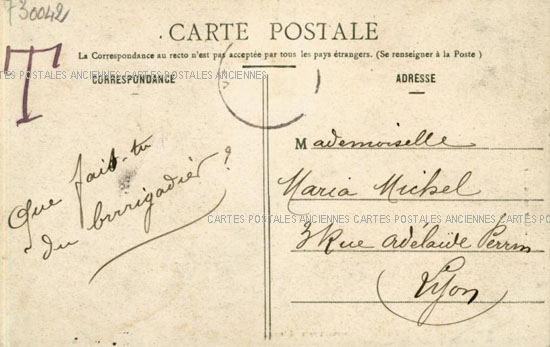 730042
T
CARTE POSTALE
La Correspondance au recto n'est pas acceptée par tous les pays étrangers. (Se renseigner à la Poste)
CARTES POSTALES ANCIENNES CARTES POSTALES ANCIENNES
CORRESPONDANCE
ADRESSE
Que fait-tu
du brrrigadier ?
Mademoiselle
Maria Michel
CARTES POSTALES ANCIENNES CARTES POSTALES ANCIENNES CARTES PO
3 Rue Adélaïde Perrin
Lyon